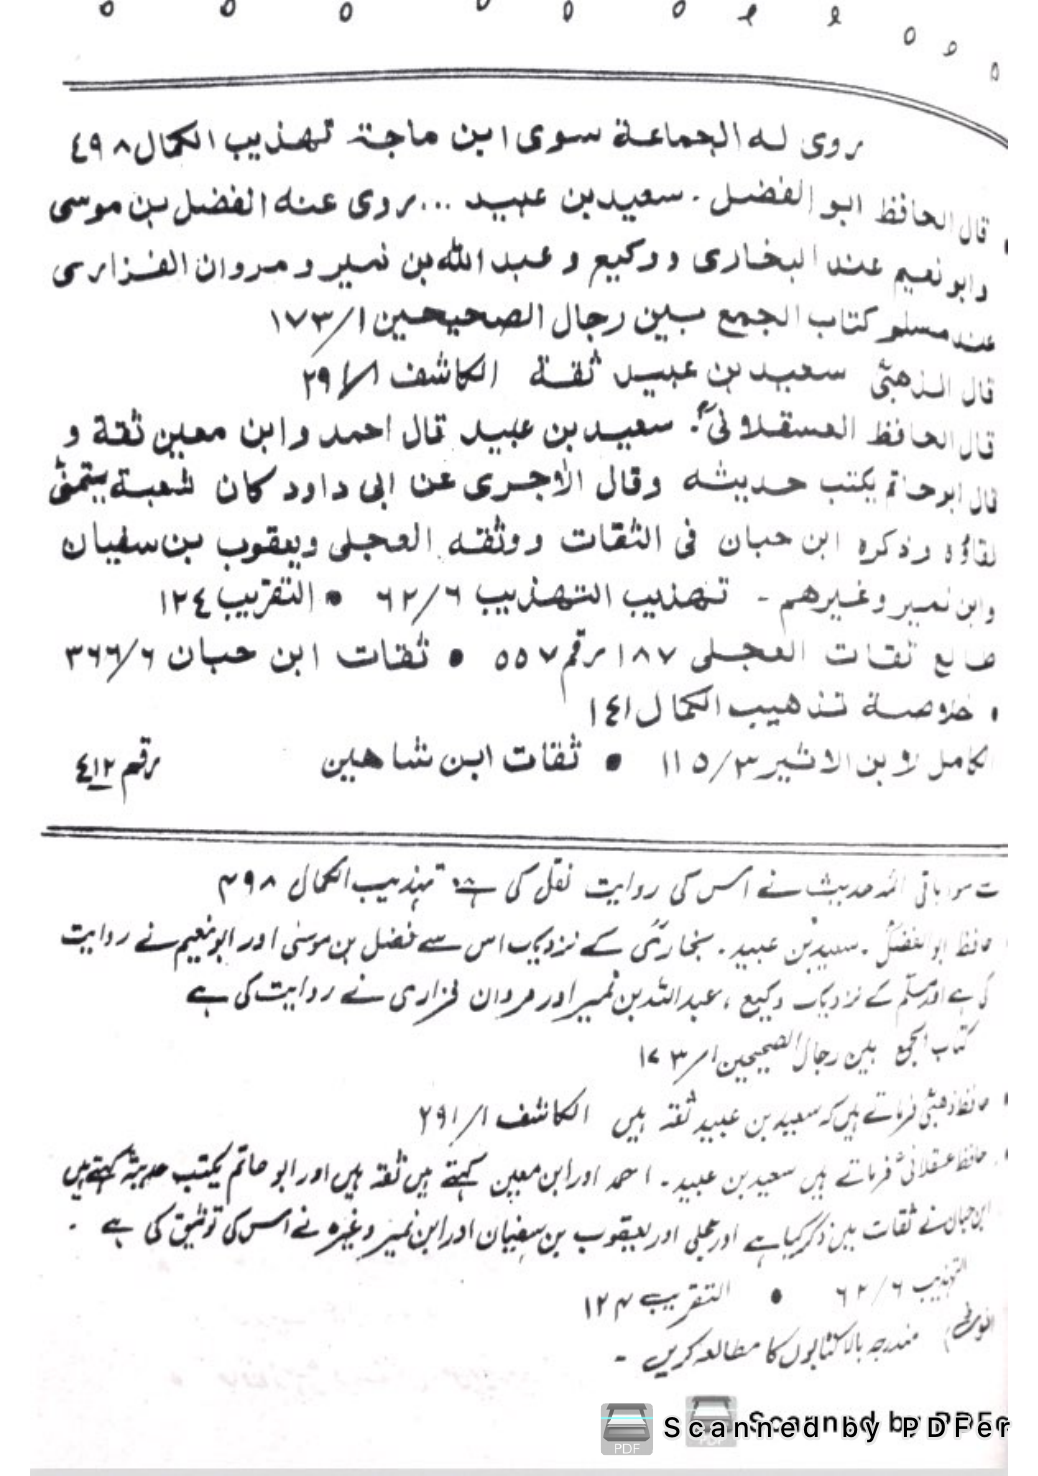 روى له الجماعة سوى ابن ماجة تهذيب الكمال ٤٩٨
قال الحافظ ابو الفضل . سعيد بن عبيد ... روى عنه الفضل بن موسى
وابو نعيم عند البخارى ووكيع و عبد الله بن نمير و مروان الفزارى
عند مسلم كتاب الجمع بين رجال الصحيحين ١/١٧٣
قال الذهبىؒ سعيد بن عبيد ثقة الكاشف ١/٢٩١
قال الحافظ العسقلانىؒ. سعيد بن عبيد قال احمد وابن معين ثقة و
قال ابو حاتم يكتب حديثه وقال الأجرى عن ابى داود كان شعبة يتمنى
لقاؤه وذكره ابن حبان فى الثقات ووثقه العجلى ويعقوب بن سفيان
وابن نمير وغيرهم - تهذيب التهذيب ٦٢/٦ • التقريب ١٢٤
طالع ثقات العجلى ١٨٧ رقم ٥٥٧ • ثقات ابن حبان ٣٦٦/٦
• خلاصة تذهيب الكمال ١٤١
الكامل لابن الاثير ١١٥/٣ • ثقات ابن شاهين رقم ٤١٢
سوا باقی ائمہ حدیث نے اس کی روایت نقل کی ہے تہذیب الکمال ۴۹۸
حافظ ابوالفضلؒ . سعید بن عبید . بخاریؒ کے نزدیک اس سے فضل بن موسیٰ اور ابونعیم نے روایت
کی ہے اور مسلمؒ کے نزدیک وکیع ، عبداللہ بن نمیر اور مروان فزاری نے روایت کی ہے
کتاب الجمع بین رجال الصحیحین ۱/۱۷۳
• حافظ ذھبیؒ فرماتے ہیں کہ سعید بن عبید ثقہ ہیں الکاشف ۱/۲۹۱
• حافظ عسقلانیؒ فرماتے ہیں سعید بن عبید . احمد اور ابن معین کہتے ہیں ثقہ ہیں اور ابو حاتم یکتب حدیثہ کہتے ہیں
ابن حبان نے ثقات میں ذکر کیا ہے اور عجلی اور یعقوب بن سفیان اور ابن نمیر وغیرہ نے اس کی توثیق کی ہے .
التہذیب ۶۲/۶ • التقریب ۱۲۴
(نوٹ) مندرجہ بالا کتابوں کا مطالعہ کریں -
Scanned by PDFer
Scanned by PDFe
PDF